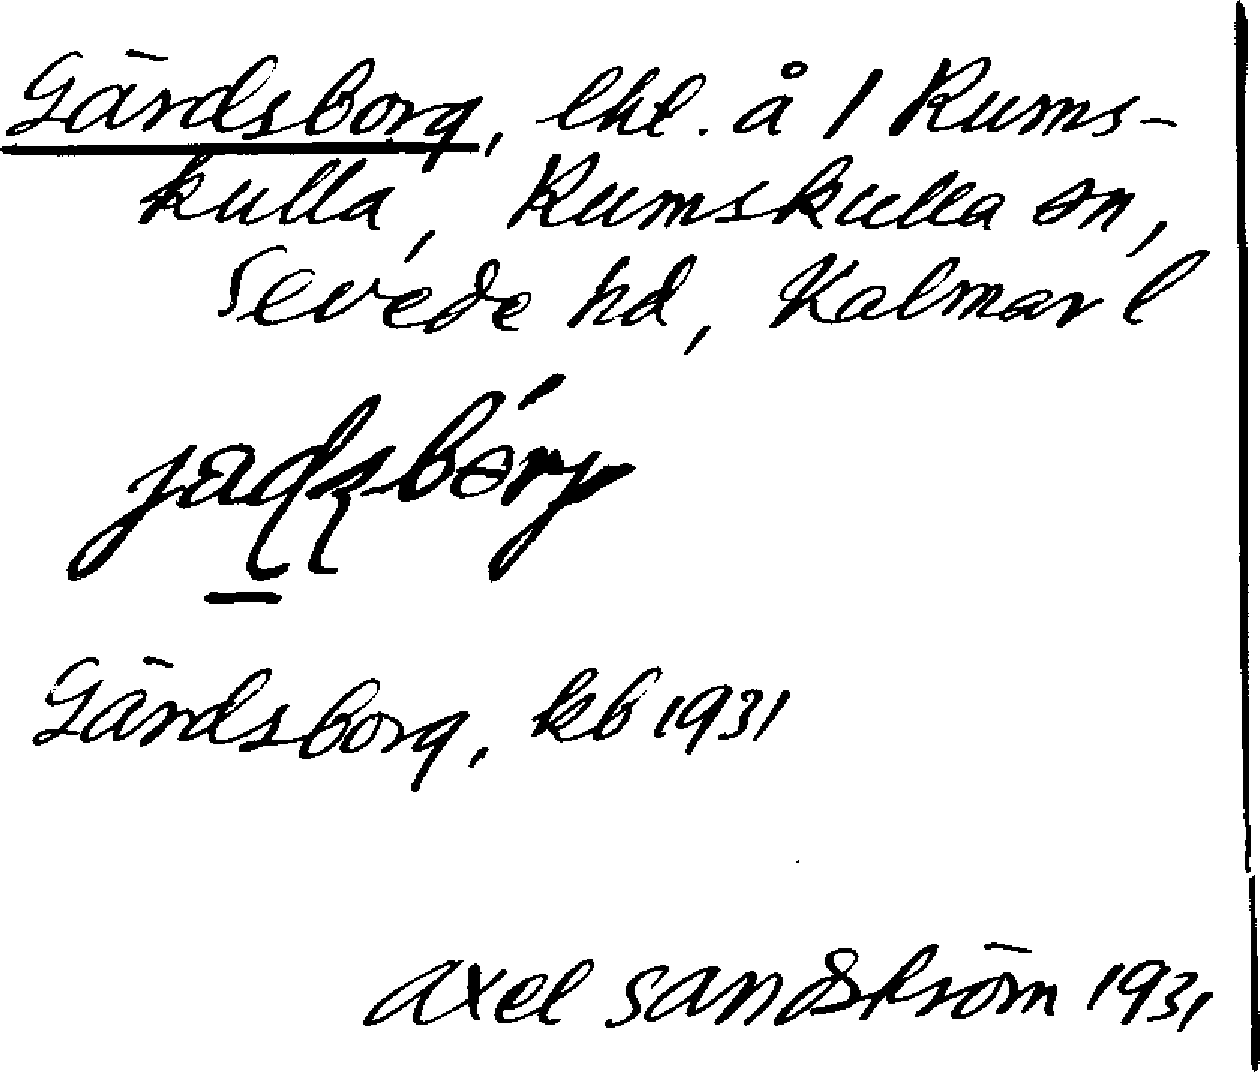 Gärdsborg, lht. å 1 Rums-
kulla, Rumskulla sn,
Sevede hd, Kalmar l
Gärdsborg, kb 1931
Axel Sandström 1931